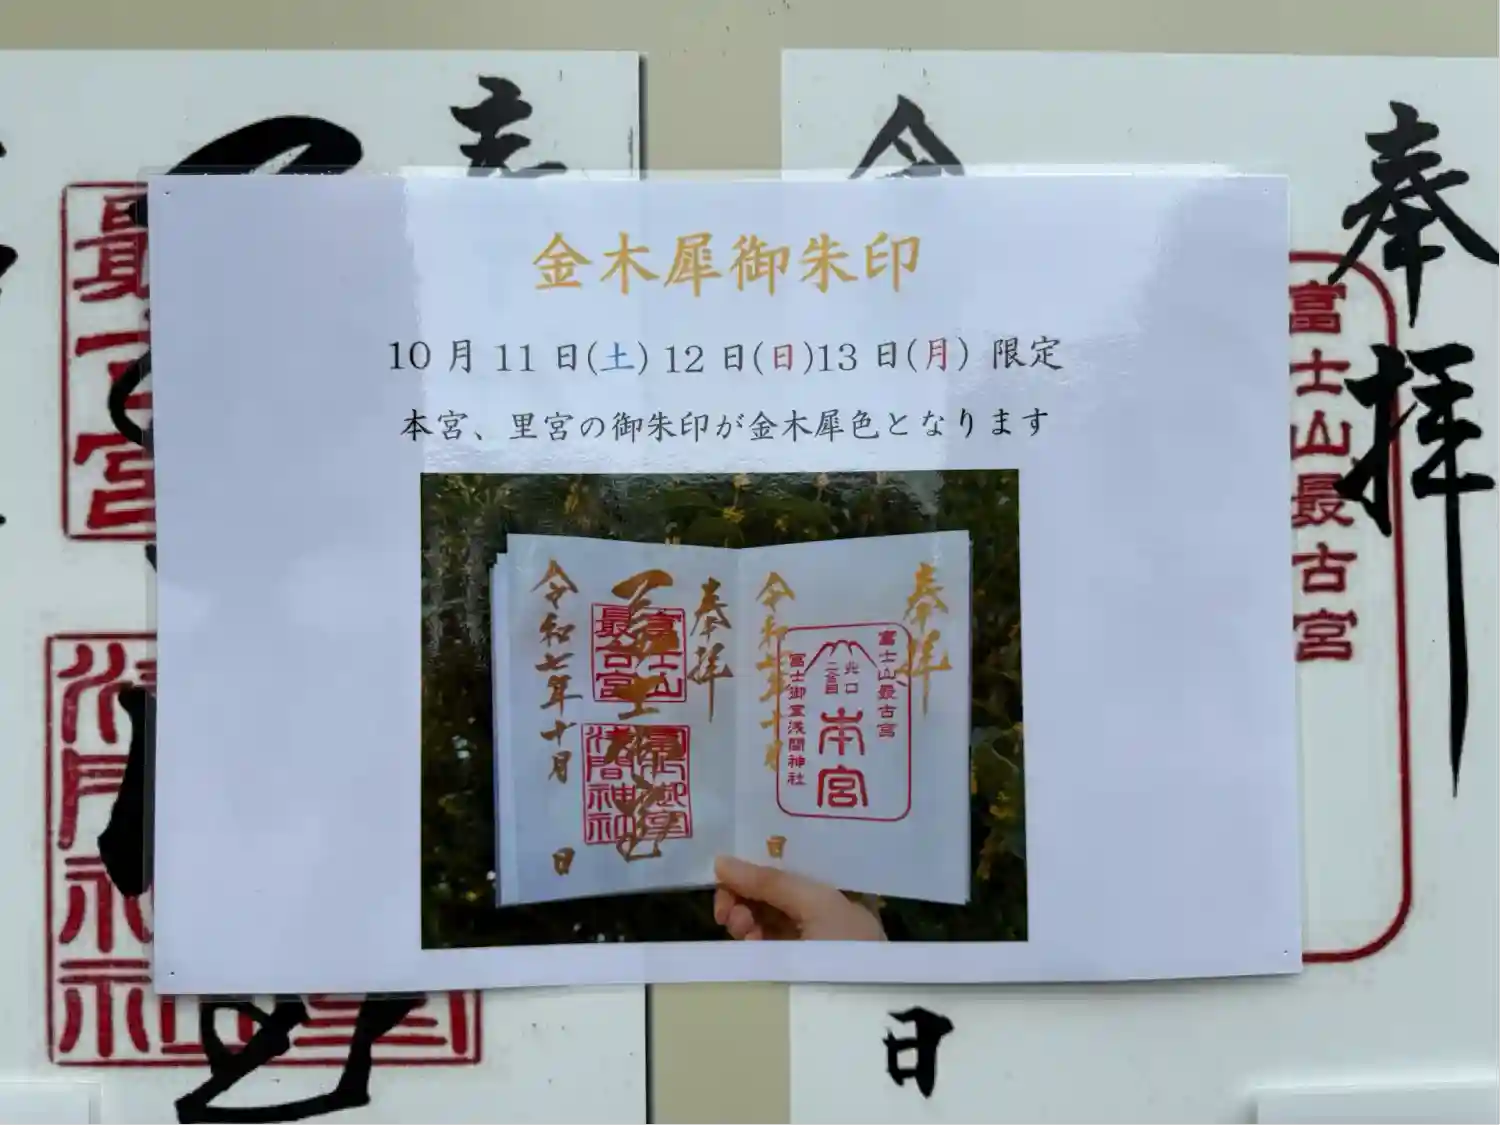 金木犀御朱印
10月11日(土)12日(日)13日(月)限定
本宮、里宮の御朱印が金木犀色となります
奉拝
富士山最古宮
富士御室浅間神社
令和七年十月
日
奉拝
富士山最古宮
北口
二合目
本宮
富士御室浅間神社
令和七年十月
日
奉拝
富士山最古宮
日